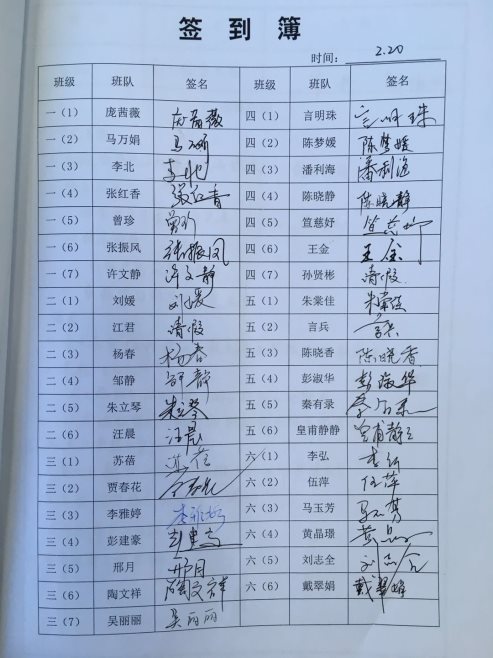 签到簿
时间： 2.20
班级 班队 签名 班级 班队 签名
一（1） 庞茜薇 庞茜薇 四（1） 言明珠 言明珠
一（2） 马万娟 马万娟 四（2） 陈梦媛 陈梦媛
一（3） 李北 李北 四（3） 潘利海 潘利海
一（4） 张红香 张红香 四（4） 陈晓静 陈晓静
一（5） 曾珍 曾珍 四（5） 笪慈妤 笪慈妤
一（6） 张振风 张振风 四（6） 王金 王金
一（7） 许文静 许文静 四（7） 孙贤彬 请假
二（1） 刘媛 刘媛 五（1） 朱棠佳 朱棠佳
二（2） 江君 请假 五（2） 言兵 言兵
二（3） 杨春 杨春 五（3） 陈晓香 陈晓香
二（4） 邹静 邹静 五（4） 彭淑华 彭淑华
二（5） 朱立琴 朱立琴 五（5） 秦有录
二（6） 汪晨 汪晨 五（6） 皇甫静静 皇甫静静
三（1） 苏蓓 苏蓓 六（1） 李弘 李弘
三（2） 贾春花 六（2） 伍萍 伍萍
三（3） 李雅婷 李雅婷 六（3） 马玉芳 马玉芳
三（4） 彭建豪 彭建豪 六（4） 黄晶璟 黄晶
三（5） 邢月 邢月 六（5） 刘志全 刘志全
三（6） 陶文祥 陶文祥 六（6） 戴翠娟 戴翠娟
三（7） 吴丽丽 吴丽丽